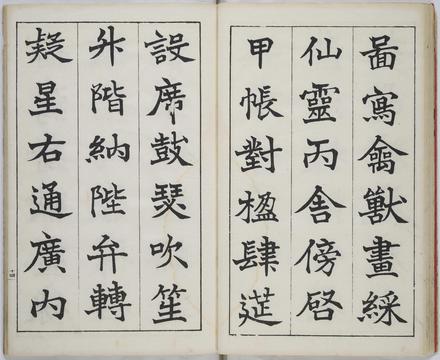 啚寫禽獸畫綵
仙靈丙舎傍啓
甲帳對楹肆筵
設席鼓瑟吹笙
升階納陛弁轉
疑星右通廣内
十四